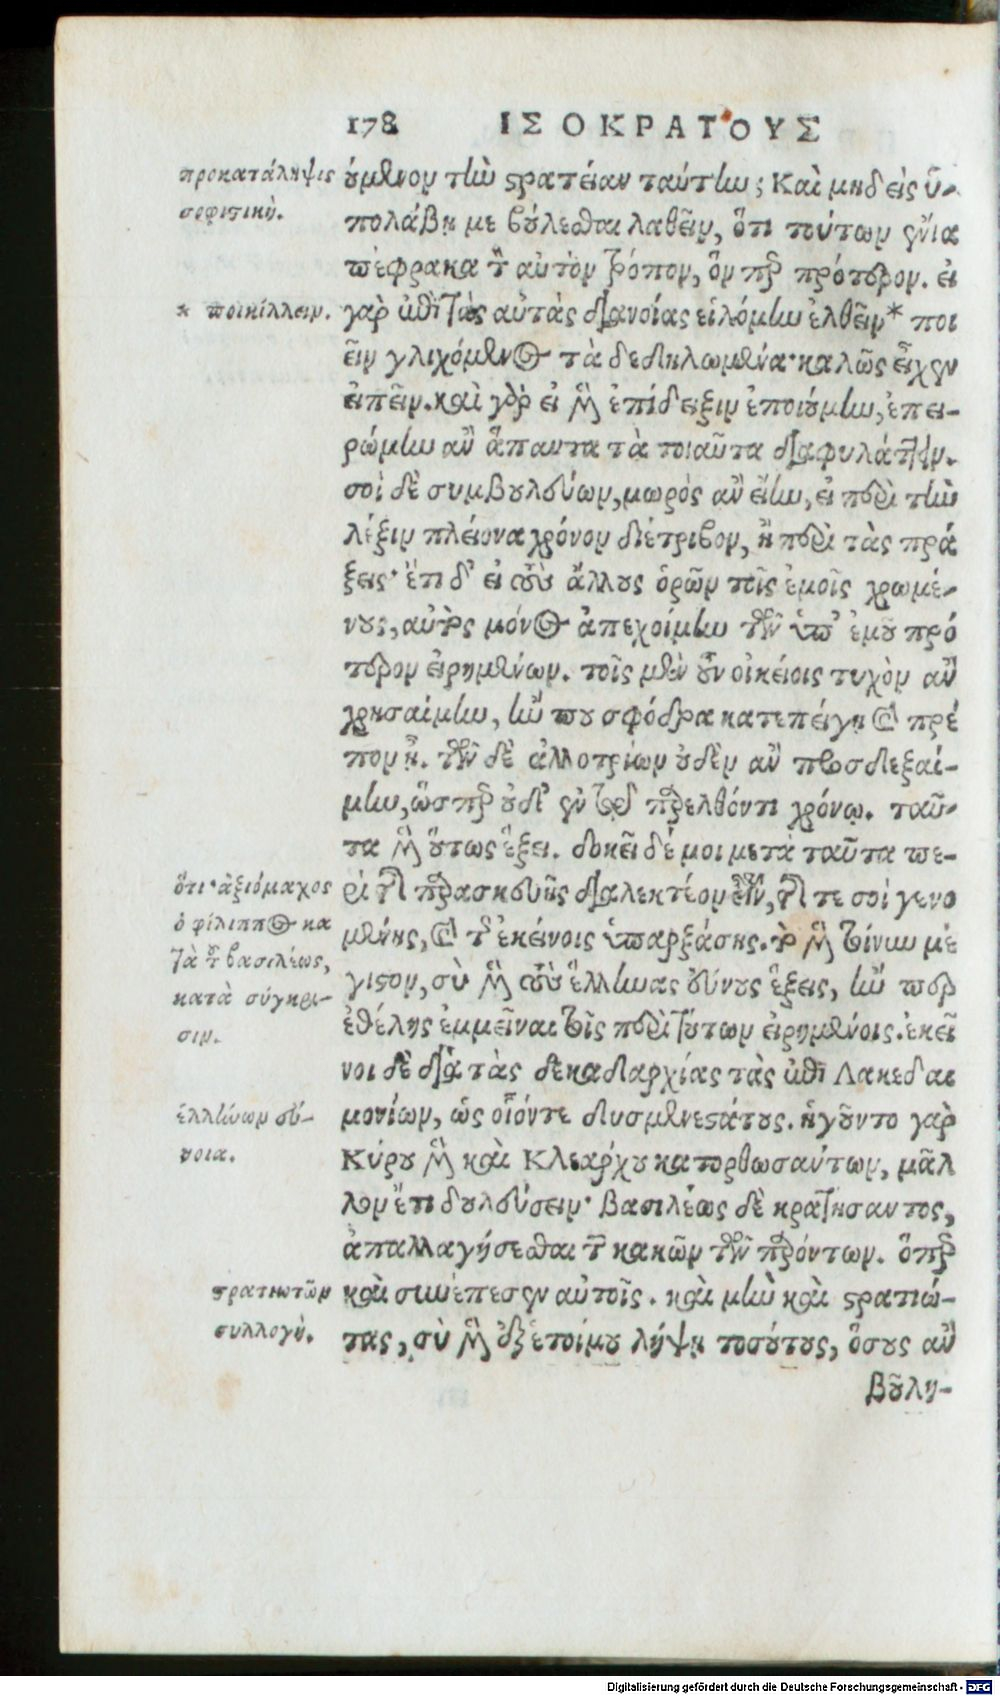 178 ΙΣΟΚΡΑΤΟΥΣ
προκατάληψις
σοφιστικὴ.
* ποικίλλειν.
ὅτι ἀξιόμαχος
ὁ φίλιππος κα
τὰ τοῦ βασιλέως,
κατὰ σύγκρι-
σιν.
ἑλλήνων εὔ-
νοια.
στρατιωτῶν
συλλογὴ.
ούμενον τὴν στρατείαν ταύτην; Καὶ μηδεὶς ὑ-
πολάβῃ με βούλεσθαι λαθεῖν, ὅτι τούτων ἔνια
πέφρακα τὸν αὐτὸν τρόπον, ὅν περ πρότερον. εἰ
γὰρ ἐπὶ τὰς αὐτὰς διανοίας εἱλόμην ἐλθεῖν* ποι
εῖν γλιχόμενος τὰ δεδηλωμένα· καλῶς εἶχεν
εἰπεῖν. καὶ γὰρ εἰ μὲν ἐπίδειξιν ἐποιούμην, ἐπει-
ρώμην ἂν ἅπαντα τὰ τοιαῦτα διαφυλάττειν.
σοὶ δὲ συμβουλεύων, μωρὸς ἂν εἴην, εἰ περὶ τὴν
λέξιν πλείονα χρόνον διέτριβον, ἢ περὶ τὰς πρά
ξεις· ἔτι δ' εἰ τοὺς ἄλλους ὁρῶν τοῖς ἐμοῖς χρωμέ-
νους, αὐτὸς μόνος ἀπεχοίμην τῶν ὑπ' ἐμοῦ πρό
τερον εἰρημένων. τοῖς μὲν οὖν οἰκείοις τυχὸν ἂν
χρησαίμην, ἤν που σφόδρα κατεπείγῃ καὶ πρέ
πον ᾖ. τῶν δὲ ἀλλοτρίων οὐδὲν ἂν προσδεξαί-
μην, ὥσπερ οὐδ' ἐν τῷ παρελθόντι χρόνῳ. ταῦ-
τα μὲν οὕτως ἕξει. δοκεῖ δέ μοι μετὰ ταῦτα πε-
ρὶ τῆς παρασκευῆς διαλεκτέον εἶναι, τῆς τε σοὶ γενο
μένης, καὶ τῆς ἐκείνοις ὑπαρξάσης. τὸ μὲν τοίνυν μέ
γιστον, σὺ μὲν τοὺς ἕλληνας εὔνους ἕξεις, ἤν περ
ἐθέλῃς ἐμμεῖναι τοῖς περὶ τούτων εἰρημένοις. ἐκεῖ
νοι δὲ διὰ τὰς δεκαδαρχίας τὰς ἐπὶ Λακεδαι
μονίων, ὡς οἷόντε δυσμενεστάτους. ἡγοῦντο γὰρ
Κύρου μὲν καὶ Κλεάρχου κατορθωσάντων, μᾶλ
λον ἔτι δουλεύσειν· βασιλέως δὲ κρατήσαντος,
ἀπαλλαγήσεσθαι τῶν κακῶν τῶν παρόντων. ὅπερ
καὶ συνέπεσεν αὐτοῖς. καὶ μὴν καὶ στρατιώ-
τας, σὺ μὲν ἐξ ἑτοίμου λήψῃ τοσούτους, ὅσους ἂν
βουλη-
Digitalisierung gefördert durch die Deutsche Forschungsgemeinschaft - DFG